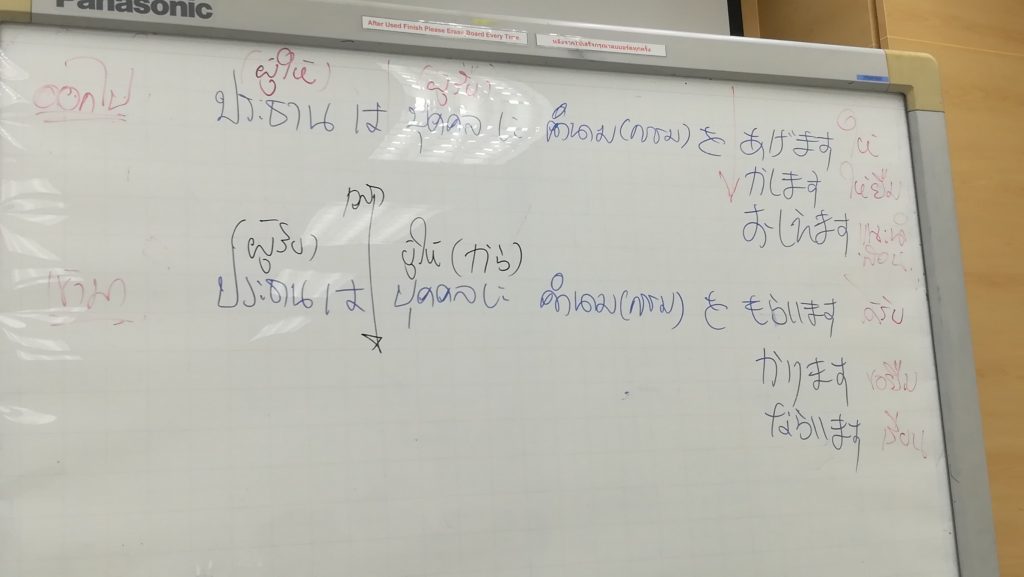 Panasonic
After Used Finish Please Erase Board Every Time
หลังจากใช้เสร็จกรุณาลบบอร์ดทุกครั้ง
(ผู้ให้) (ผู้รับ)
ออกไป ประธาน は บุคคล に คำนาม(กรรม) を あげます ให้
かします ให้ยืม
おしえます แนะนำ สอน
(ผู้รับ) ผู้ให้
เข้ามา ประธาน は บุคคล に คำนาม(กรรม) を もらいます ได้รับ
かります ขอยืม
ならいます เรียน